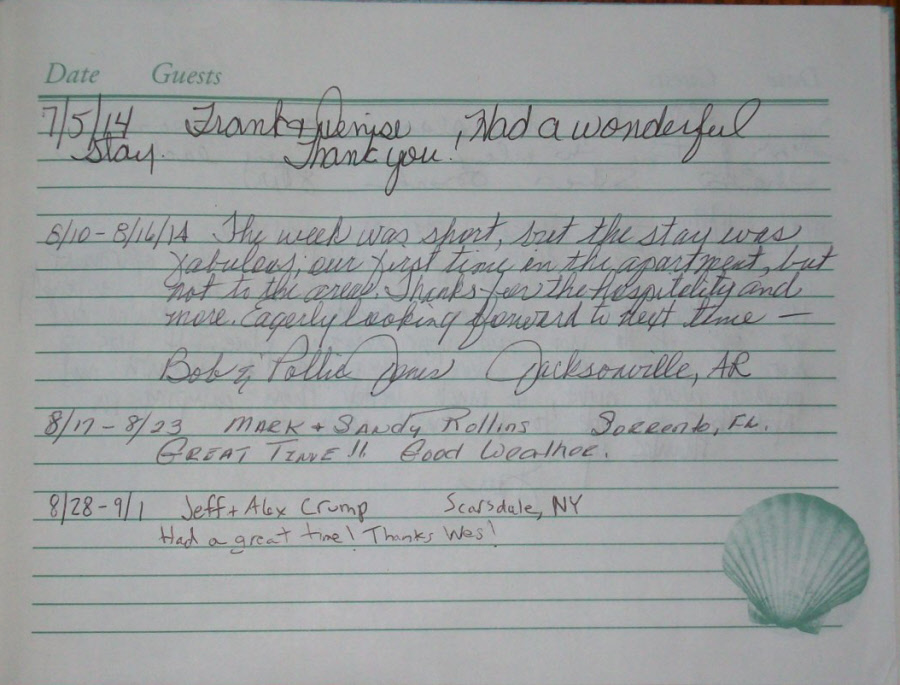 Date Guests
7/5/14 Frank & Denise, Had a wonderful
Stay. Thank you!
8/10 - 8/16/14 The week was short, but the stay was
fabulous, our first time in the apartment, but
not to the area. Thanks for the hospitality and
more. Eagerly looking forward to next time —
Bob & Pollie Jones Jacksonville, AR
8/17 - 8/23 MARK + SANDY Rollins Sorrento, FL.
GREAT TIME!! Good Weather.
8/28 - 9/1 Jeff + Alex Crump Scarsdale, NY
Had a great time! Thanks Wes!